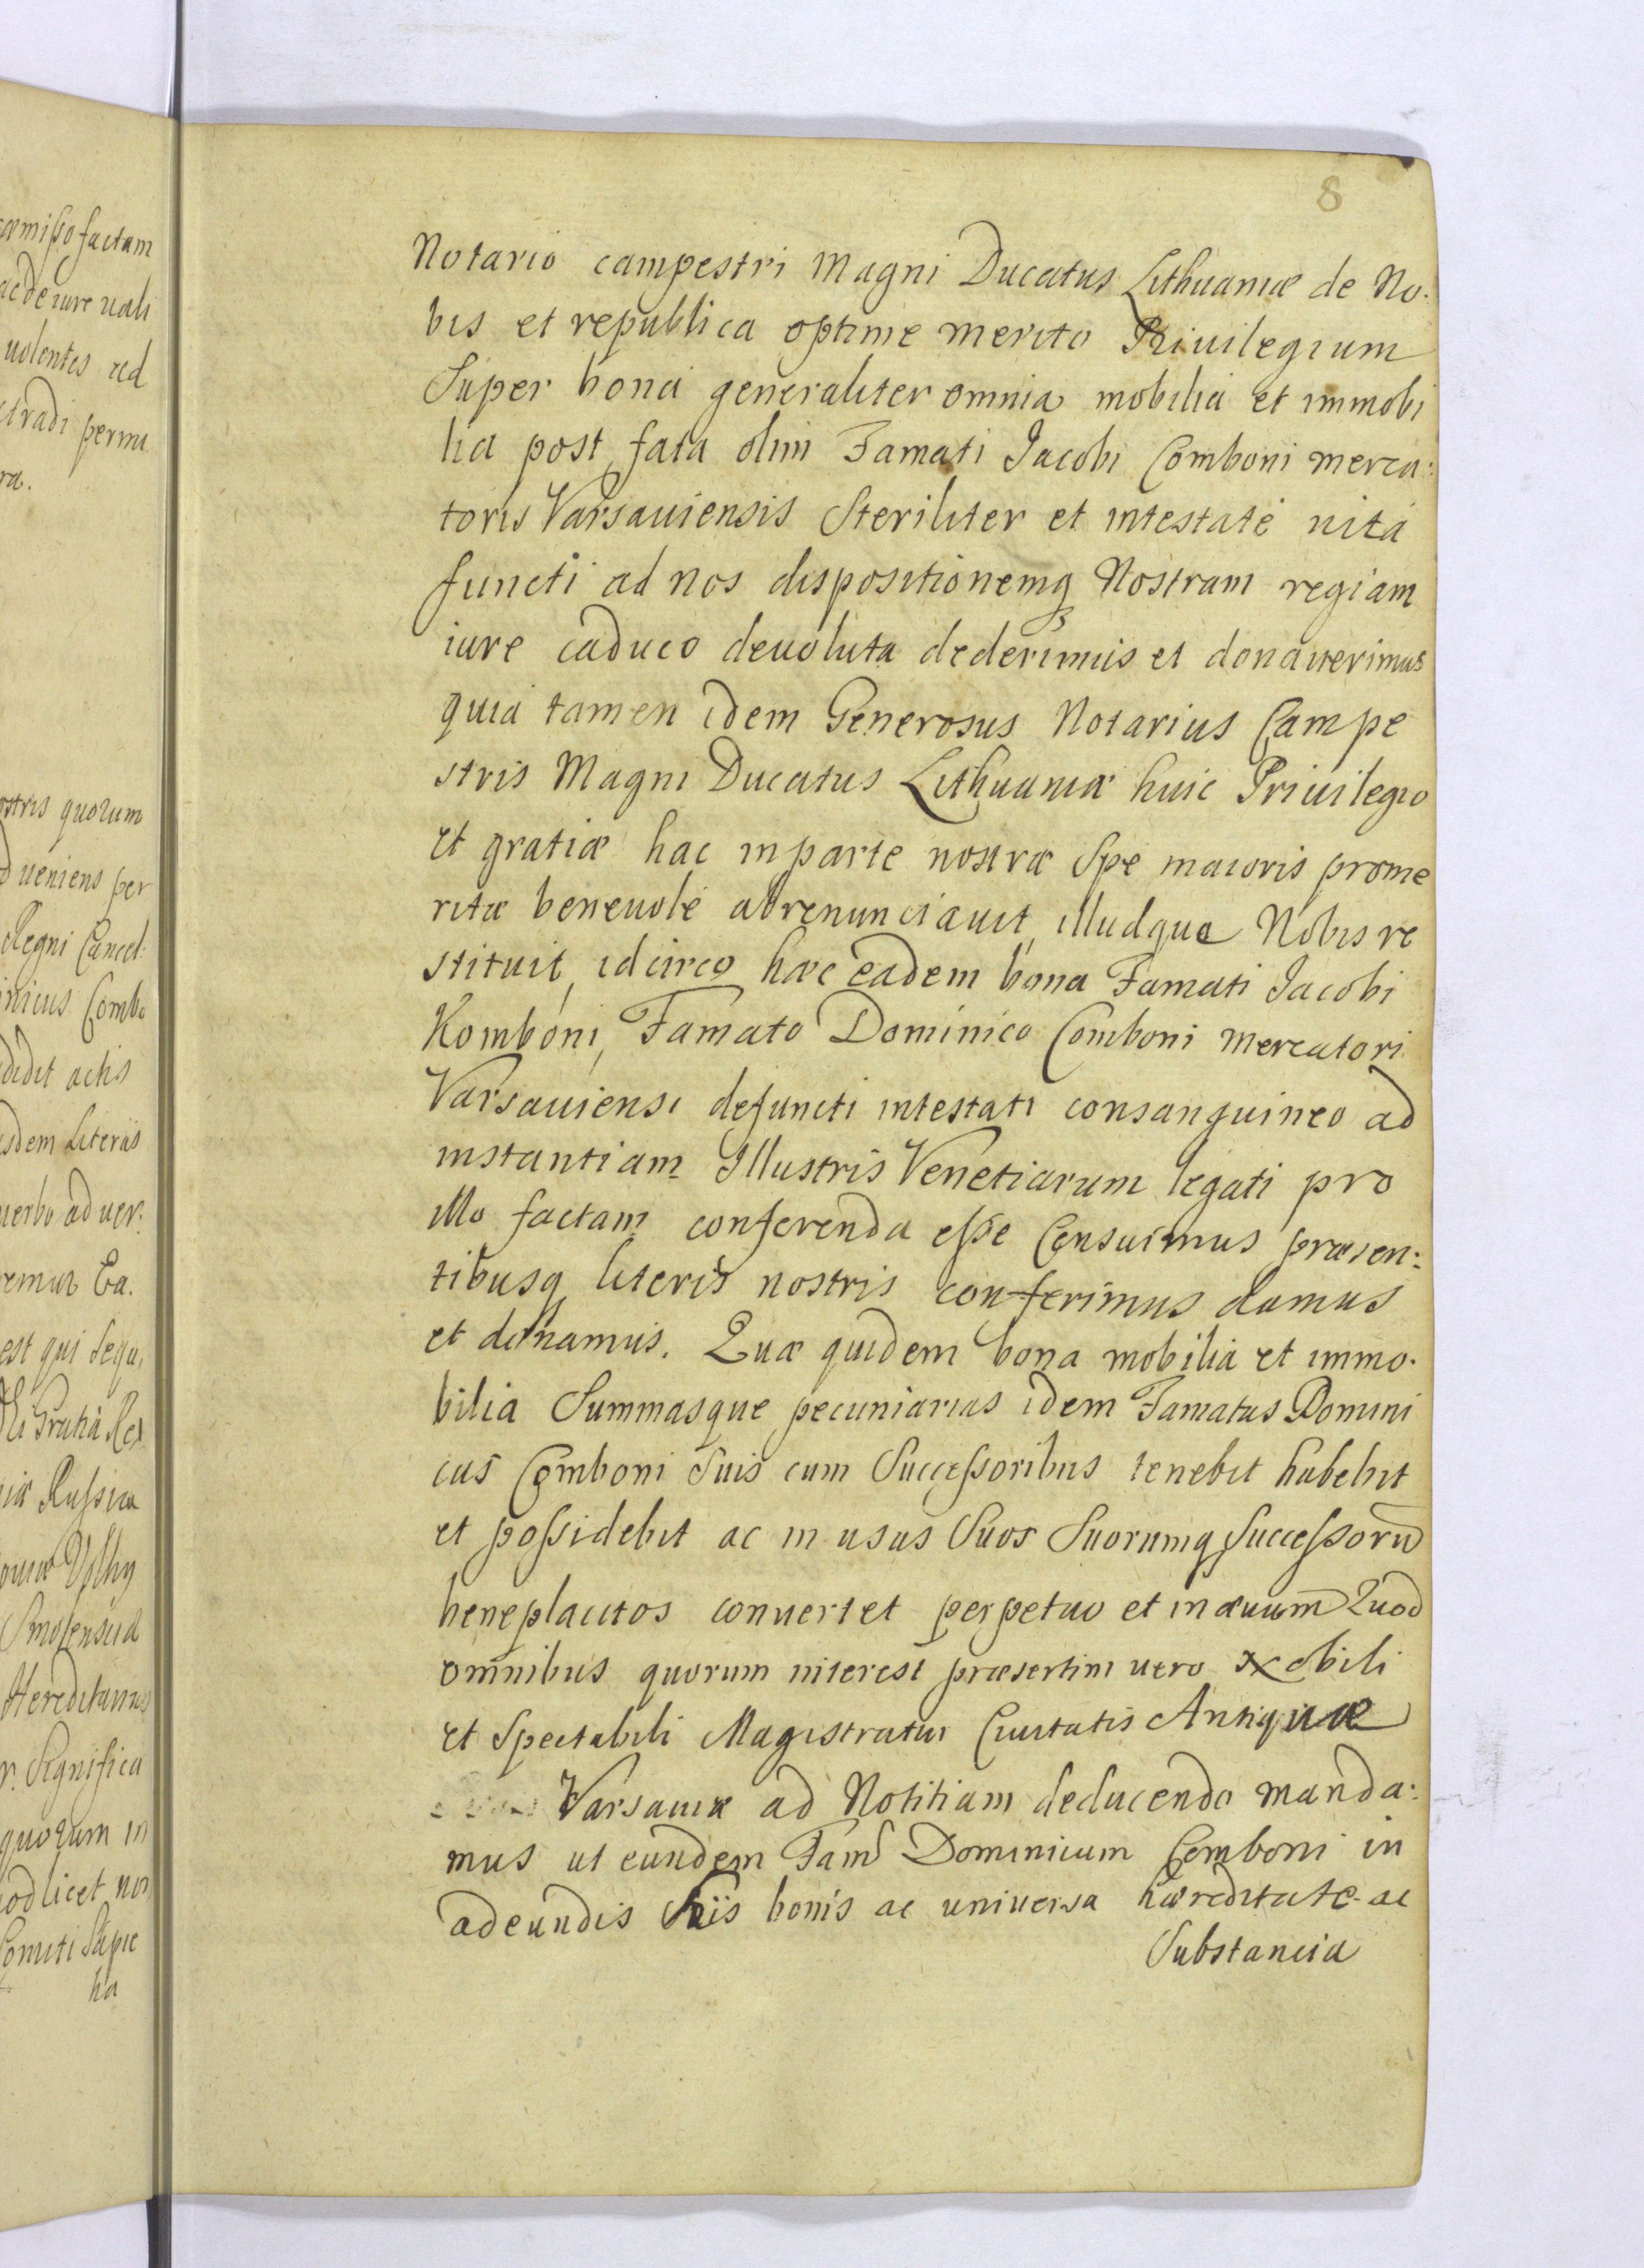 8
Notario campestri Magni Ducatus Lithuaniæ de No.
bis et republica optime merito Priuilegium
Super bona generaliter omnia mobilia et immobi
lia post fata olim Famati Jacobi Comboni merca:
toris Varsauiensis Steriliter et intestaté uitá
functi ad nos dispositionemq Nostram regiam
iure caduco deuoluta dederimus et donauerimus
quia tamen idem Generosus Notarius Campe
stris Magni Ducatus Lithuaniæ huic Priuilegio
et gratiæ hac in parte nostræ Spe maioris prome
ritæ beneuolé abrenunciauit, illudque Nobis re
stituit, idcirco hæc eadem bona Famati Jacobi
Komboni, Famato Dominico Comboni mercatori
Varsauiensi defuncti intestati consanguineo ad
instantiam Illustris Venetiarum legati pro
illo factam conferenda eſse Censuimus præsen:
tibusq literis nostris conferimus damus
et donamus. Quæ quidem bona mobilia et immo.
bilia Summasque pecuniarias idem Famatus Domini
cus Comboni Suis cum Succeſsoribus tenebit habebit
et poſsidebit ac in usus Suos Suorumq Succeſsorū
beneplacitos conuertet perpetuo et in æuum Quod
omnibus quorum interest præsertim uero Nobili
et Spectabili Magistratui Ciuitatis Antiquæ
Varsauiæ ad Notitiam deducendo manda:
mus ut eundem Fam Dominicum Comboni in
adeundis Suis bonis ac uniuersa hæreditate ac
Substancia
omiſso factam
ac de iure uali
uolentes ad
tradi permi
ra.
ostris quorum
ueniens per
Regni Cancel
inicus Combo
didit actis
sdem Literis
uerbo ad uer:
est qui Sequi
Gratia Rex
Ruſsiæ
Smolensciæ
Significa
quorum in
od licet nos
Comiti Sapie
ha